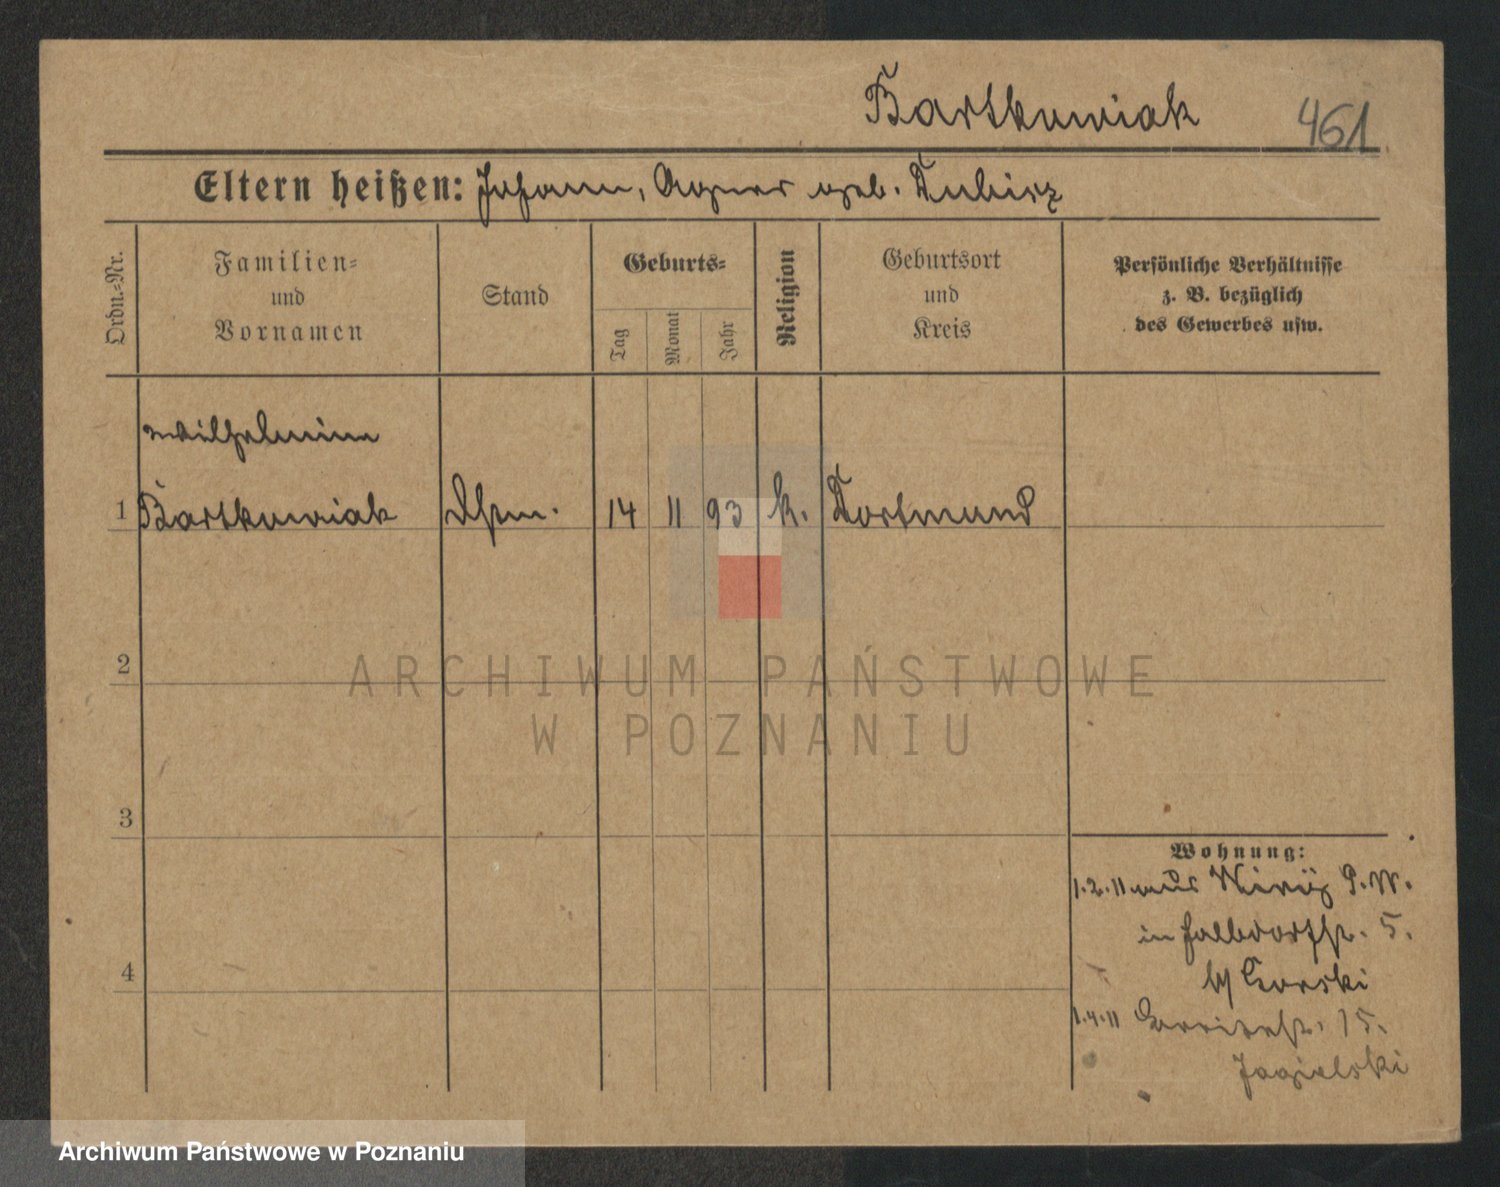 Bartkowiak 461
Eltern heißen: Johann, Agnes geb. Dubisz
Ordn.=Nr.
Familien=
und
Vornamen
Stand
Geburts=
Tag
Monat
Jahr
Religion
Geburtsort
und
Kreis
Persönliche Verhältnisse
z. B. bezüglich
des Gewerbes usw.
Wilhelmine
1 Bartkowiak 14 11 93 k. Dortmund
2
ARCHIWUM PAŃSTWOWE
W POZNANIU
3
4
Wohnung:
1.2.11 aus P.W.
in Halbdorfstr. 5.
b/ Gorski
1.4.11 15.
Jagielski
Archiwum Państwowe w Poznaniu